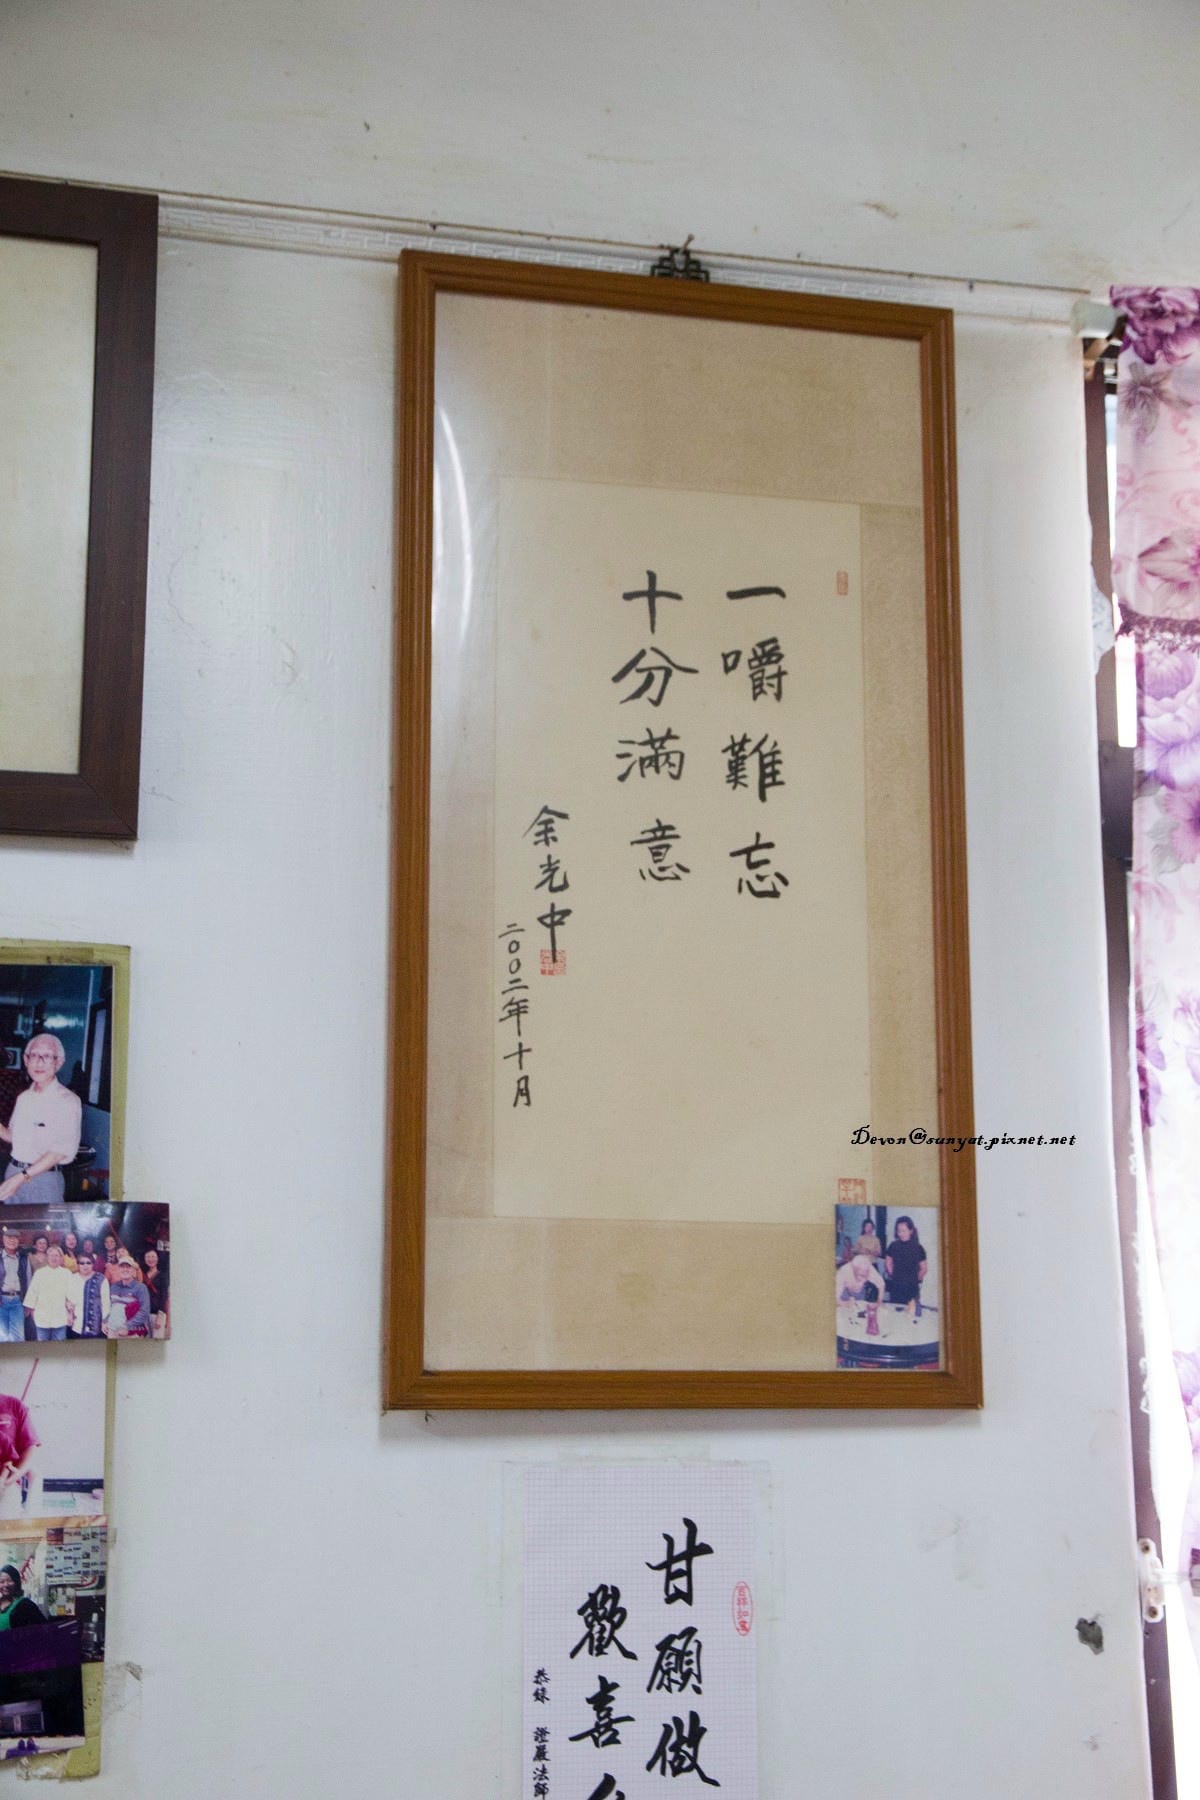 一嚼難忘
十分滿意
余光中
二〇〇二年十月
Devon@sunyat.pixnet.net
吉祥如意
甘願做
歡喜
恭錄 證嚴法師